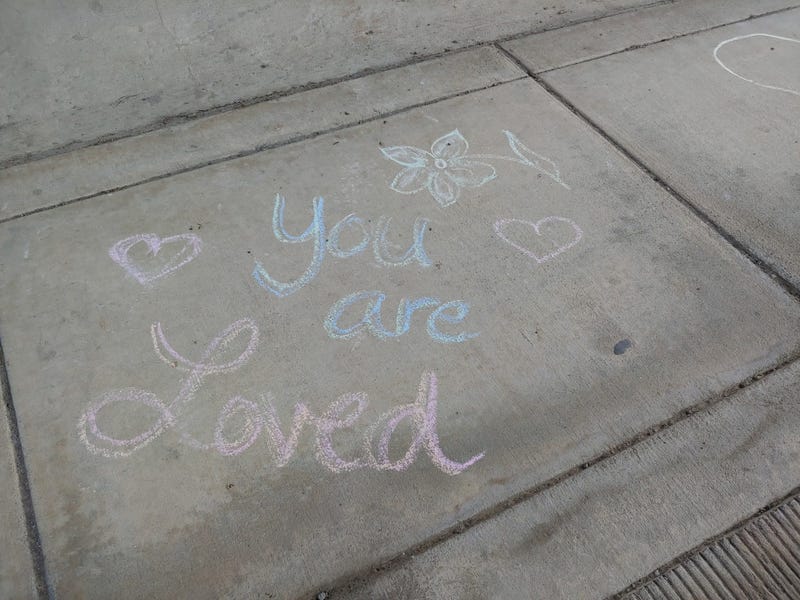 You
are
Loved